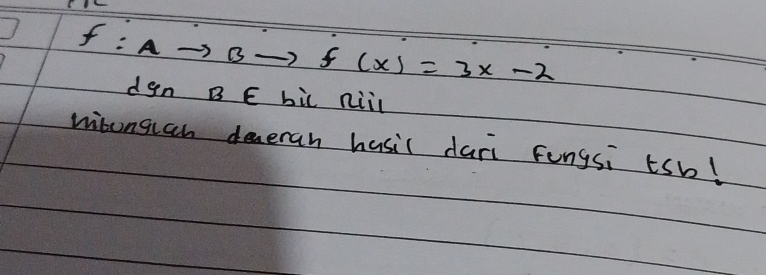 f : A → B → f (x) = 3x - 2
dgn B E bil Riil
Hitunglah daerah hasil dari fungsi tsb!